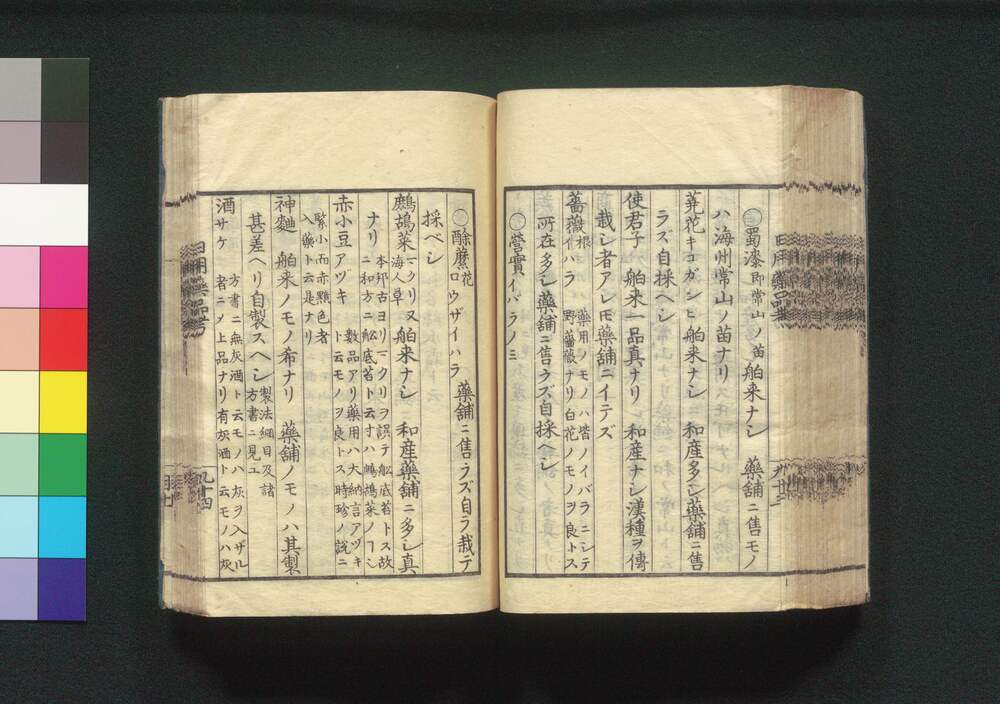 〇蜀漆 即常山ノ苗 舶来ナシ 薬舗ニ售モノ
ハ海州常山ノ苗ナリ
蕘花 キコガンヒ 舶来ナシ 和産多シ薬舗ニ售
ラズ自採ヘシ
使君子 舶来一品真ナリ 和産ナシ漢種ヲ傳
栽シ者アレ𪜈薬舗ニイテズ
薔薇根 イハラ 薬用ノモノハ皆ノイバラニシテ
野薔薇ナリ白花ノモノヲ良トス
所在多シ薬舗ニ售ラズ自採ヘシ
〇營實 イバラノミ
〇酴釄花 ロウザイハラ 薬舗ニ售ラズ自ラ栽テ
採ベシ
鷓鴣菜 マクリ又海人草 舶来ナシ 和産薬舗ニ多シ真
ナリ 本邦古ヨリマクリヲ誤テ舩底苔トス故
ニ和方ニ舩底苔ト云寸ハ鷓鴣菜ノヿシ
赤小豆 アツキ 数品アリ薬用ハ大納言アヅキ
ト云モノヲ良トス時珍ノ説ニ
緊小而赤黯色者
入薬ト云是ナリ
神麯 舶来ノモノ希ナリ 薬舗ノモノハ其製
甚差ヘリ自製スヘシ 製法綱目及諸
方書ニ見ユ
酒 サケ 方書ニ無灰酒ト云モノハ灰ヲ入ザル
者ニメ上品ナリ有灰酒ト云モノハ灰